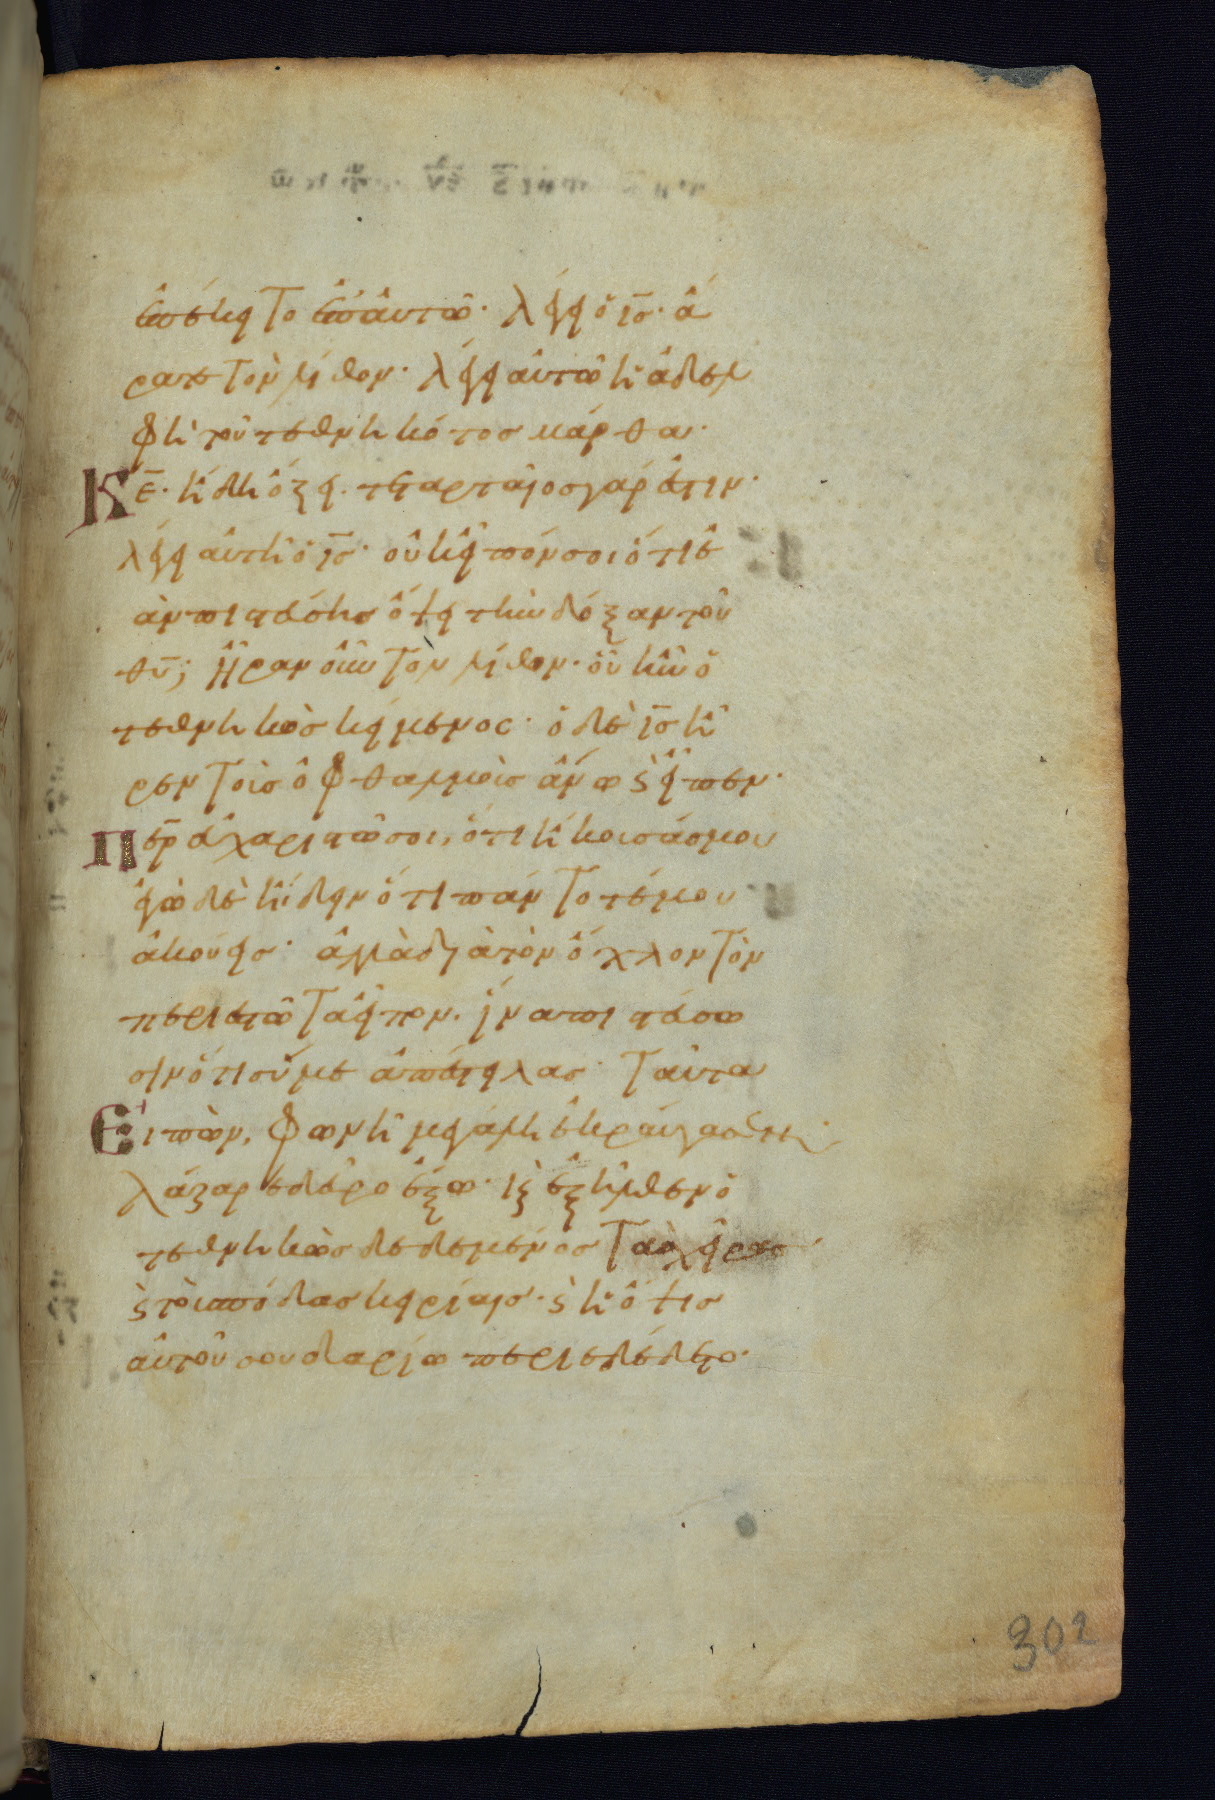 ἐπέκειτο ἐπ' αὐτῷ· λέγει ὁ ι̅ς̅· ἄ
ρατε τὸν λίθον· λέγει αὐτῷ ἡ ἀδελ
φὴ τοῦ τεθνηκότος μάρθα·
Κ̅ε̅· ἤδη ὄζει· τεταρταῖος γάρ ἐστιν·
λέγει αὐτῇ ὁ ι̅ς̅· οὐκ εἶπόν σοι ὅτι ἐ
ὰν πιστεύσῃς ὄψει τὴν δόξαν τοῦ
θ̅υ̅; ἦραν οὖν τὸν λίθον· οὗ ἦν ὁ
τεθνηκὼς κείμενος· ὁ δὲ ι̅ς̅ ἦ
ρεν τοὺς ὀφθαλμοὺς ἄνω ϗ εἶπεν·
Πε̅ρ̅ εὐχαριστῶ σοι, ὅτι ἤκουσάς μου
ἐγὼ δὲ ἤδειν ὅτι πάντοτέ μου
ἀκούεις· ἀλλὰ διὰ τὸν ὄχλον τὸν
περιεστῶτα εἶπον· ἵνα πιστεύσω
σιν ὅτι σύ με ἀπέστειλας· ταῦτα
Εἰπὼν, φωνῇ μεγάλῃ ἐκραύγασεν·
λάζαρε δεῦρο ἔξω· ϗ ἐξῆλθεν ὁ
τεθνηκὼς δεδεμένος τὰς χεῖρας
ϗ τοὺς πόδας κειρίαις· ϗ ἡ ὄψις
αὐτοῦ σουδαρίω περιεδέδετο·
302